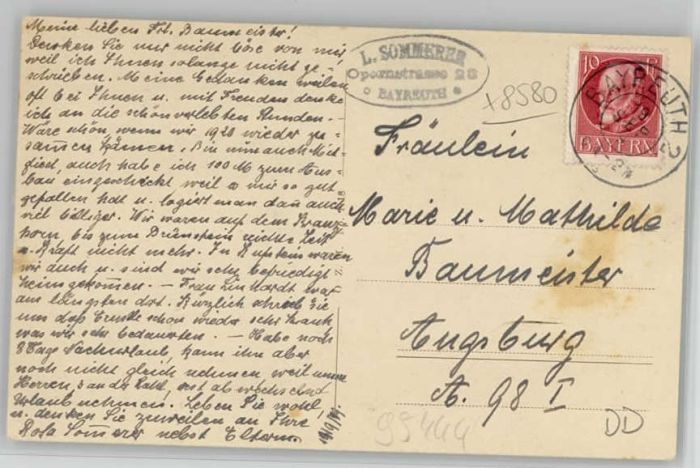 Meine lieben Frl. Baumeister!
Denken Sie nur nicht böse von mir
weil ich Ihnen solange nicht ge-
schrieben. Meine Gedanken weilen
oft bei Ihnen u. mit Freuden denke
ich an die schön verlebten Stunden.
Wäre schön, wenn wir 1920 wieder zu-
sammen kämen. Bin nun auch Mit-
glied, auch habe ich 100 M zum Aus-
bau eingeschickt weil es mir so gut
gefallen hat u. logiert man dan auch
viel billiger. Wir waren auf dem Kranz-
horn, bis zum Brünstein reichte Zeit
u. Kraft nicht mehr. In Kufstein waren
wir auch u. sind wir sehr befriedigt
heimgekommen. — Frau war
am längsten dort. Kürzlich schrieb Sie
uns daß schon wieder sehr krank
was wir sehr bedauerten. — Habe noch
8 Tage Nachurlaub, kann ihn aber
noch nicht gleich nehmen, weil unsere
Herren, 3 an der Zahl, erst abwechselnd
Urlaub nehmen. Leben Sie wohl
u. denken Sie zuweilen an Ihre
Rosa Sommerer nebst Eltern.
L. SOMMERER
Opernstrasse 26
BAYREUTH
+8580
10
BAYERN
BAYREUTH 2
Fräulein
Marie u. Mathilde
Baumeister
Augsburg
A. 98 I
95444
DD